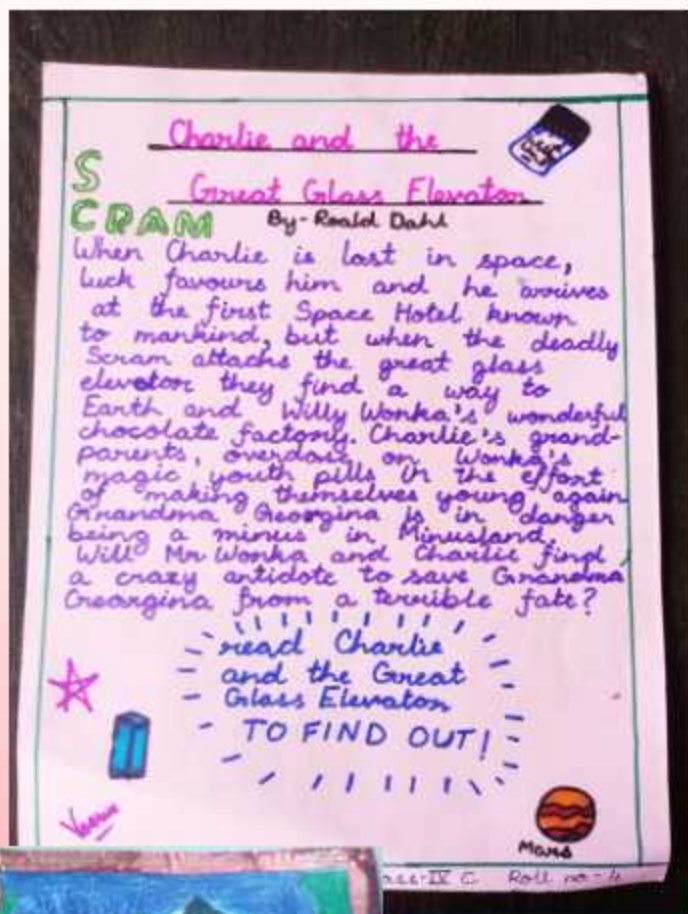 Charlie and the
Great Glass Elevator
SCRAM
By- Roald Dahl
When Charlie is lost in space,
luck favours him and he arrives
at the first Space Hotel known
to mankind, but when the deadly
Scram attacks the great glass
elevator they find a way to
Earth and Willy Wonka's wonderful
chocolate factory. Charlie's grand-
parents, overdose on Wonka's
magic youth pills in the effort
of making themselves young again
Grandma Georgina is in danger
being a minus in Minusland.
Will Mr Wonka and Charlie find
a crazy antidote to save Grandma
Georgina from a terrible fate?
read Charlie
and the Great
Glass Elevator
TO FIND OUT!
Mars
IV C Roll no-